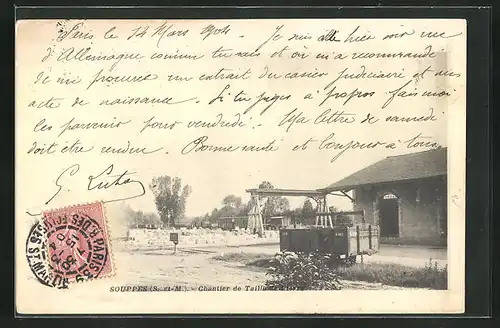 Paris le 14 Mars 1904. Je suis allé hier soir rue
d'Allemagne comme tu sais et on m'a recommandé
de me procurer un extrait du casier judiciaire et un
acte de naissance. Si tu juges à propos fais moi
les parvenir pour vendredi. Ma lettre de samedi
doit être rendue. Bonne santé et bonjour à tous.
G.
PARIS
SOUPPES (S.-et-M.) - Chantier de Taille